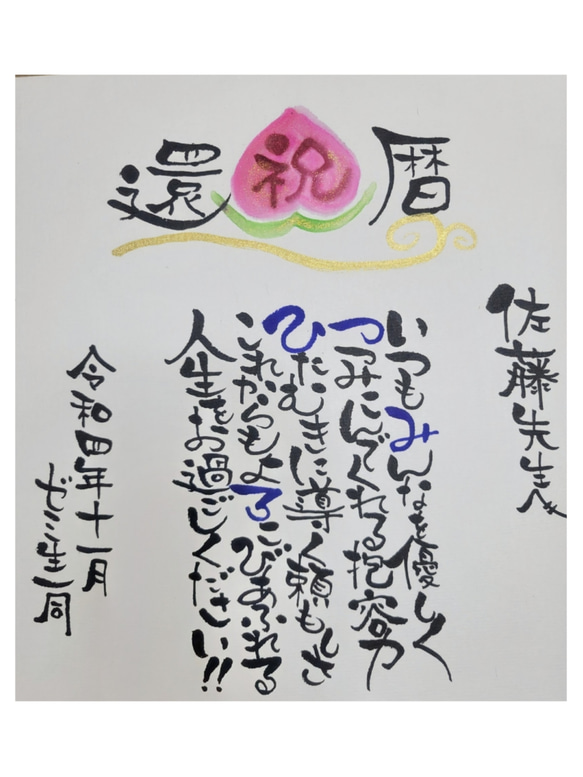 還祝暦
佐藤先生へ
いつもみんなを優しく
つつみこんでくれる抱容力
ひたむきに導く頼もしさ
これからもよろこびあふれる
人生をお過ごしください!!
令和四年十一月
ゼミ生一同